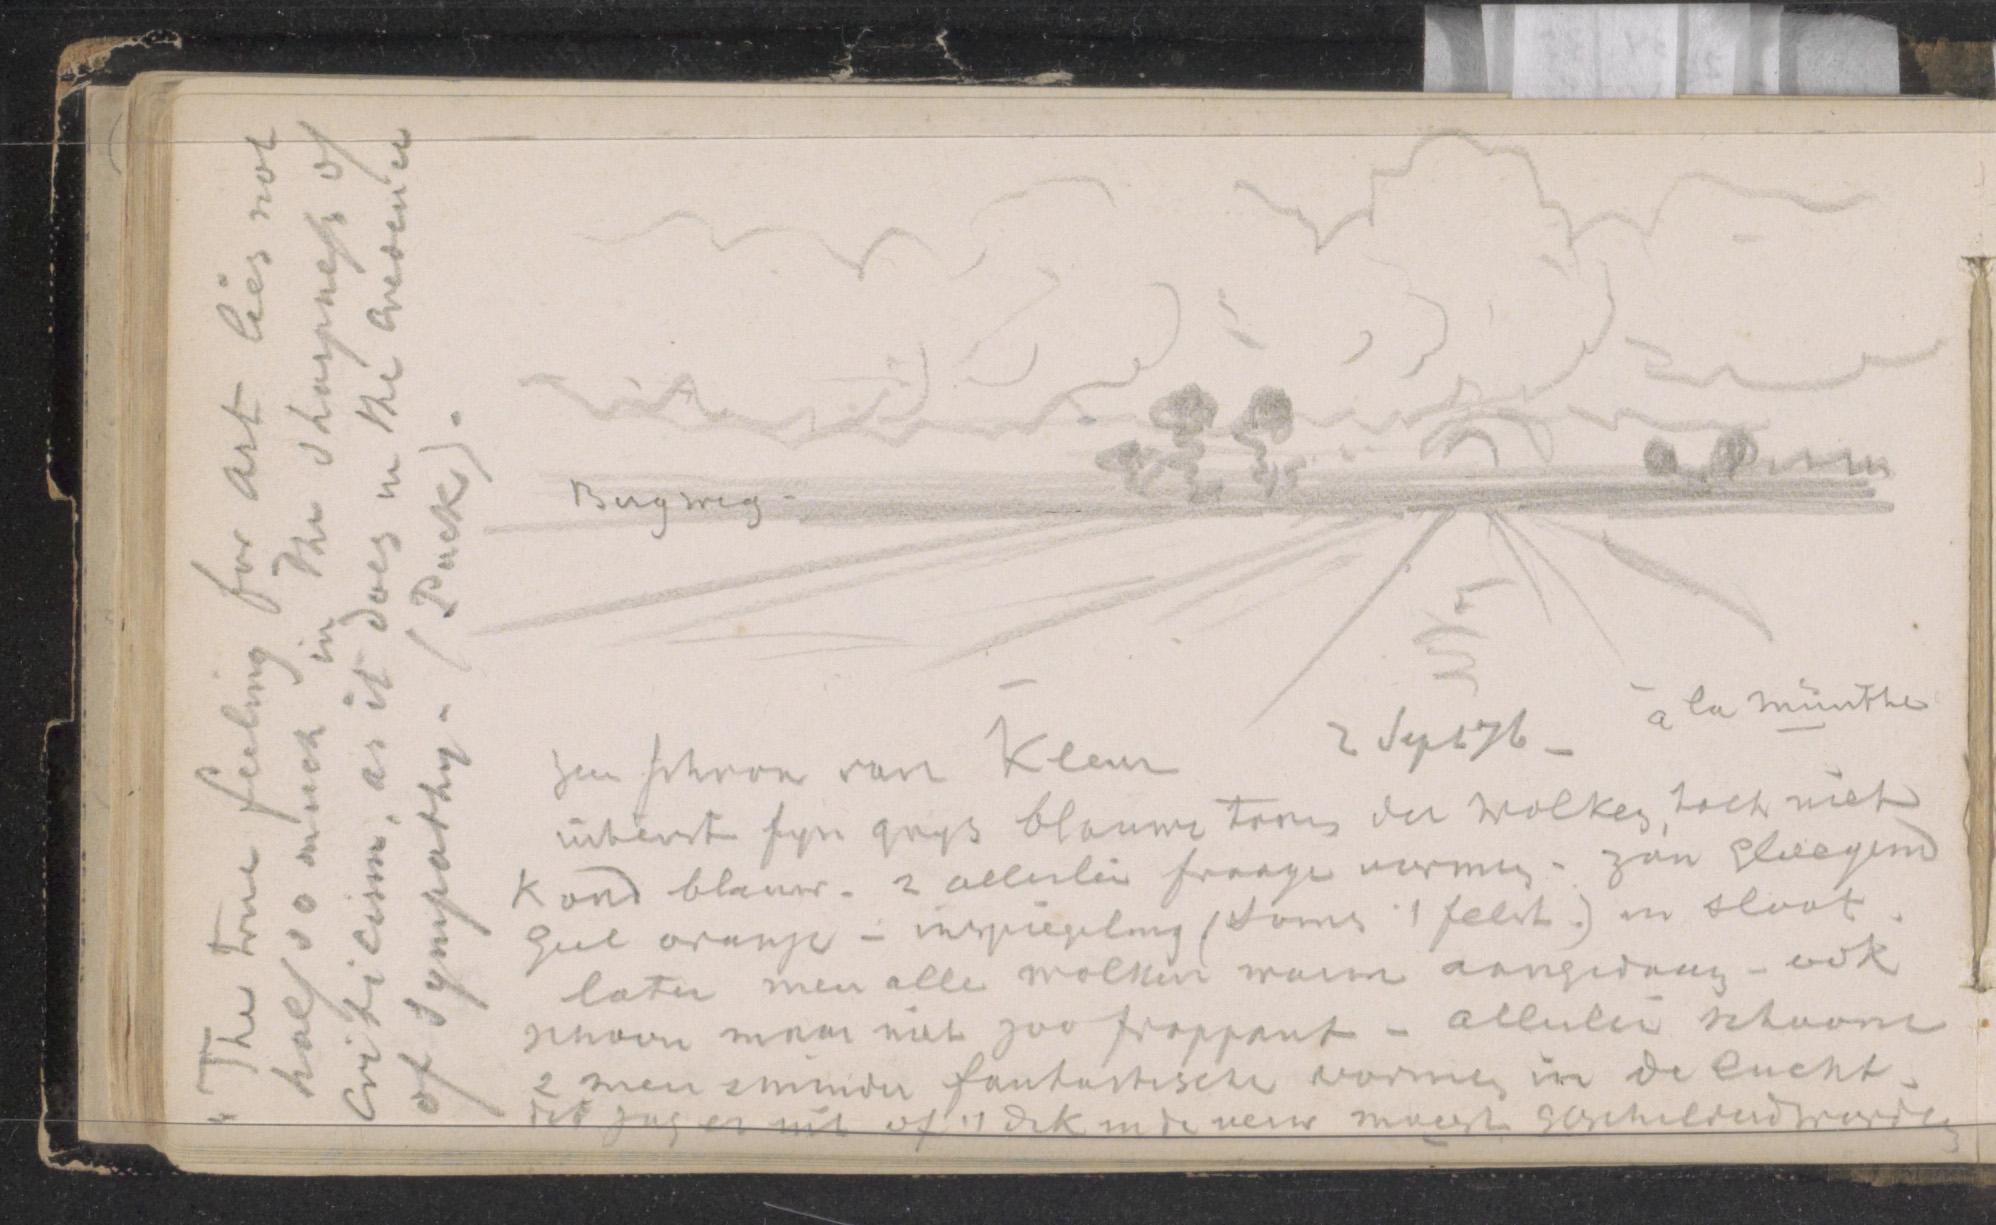 "The true feeling for art lies not
half so much in the sharpness of
criticism, as it does in the
of sympathy - (Puck).
Bergweg -
à la Münthe
2 Sept 76 -
zeer schoon van Kleur
uiterst fyn grys blauwe tons der wolken, toch niet
Koud blauw - 2 allerlei fraaye vormen - zon gloeyend
geel oranje - inspiegeling (soms 't felst.) in sloot.
later meer alle wolken warm aangedaan - ook
schoon maar niet zoo frappant - allerlei schoone
2 meer 2 minder fantastische vormen in de lucht.
dit zag er uit of 't ook in de verw moest geschilderd worden